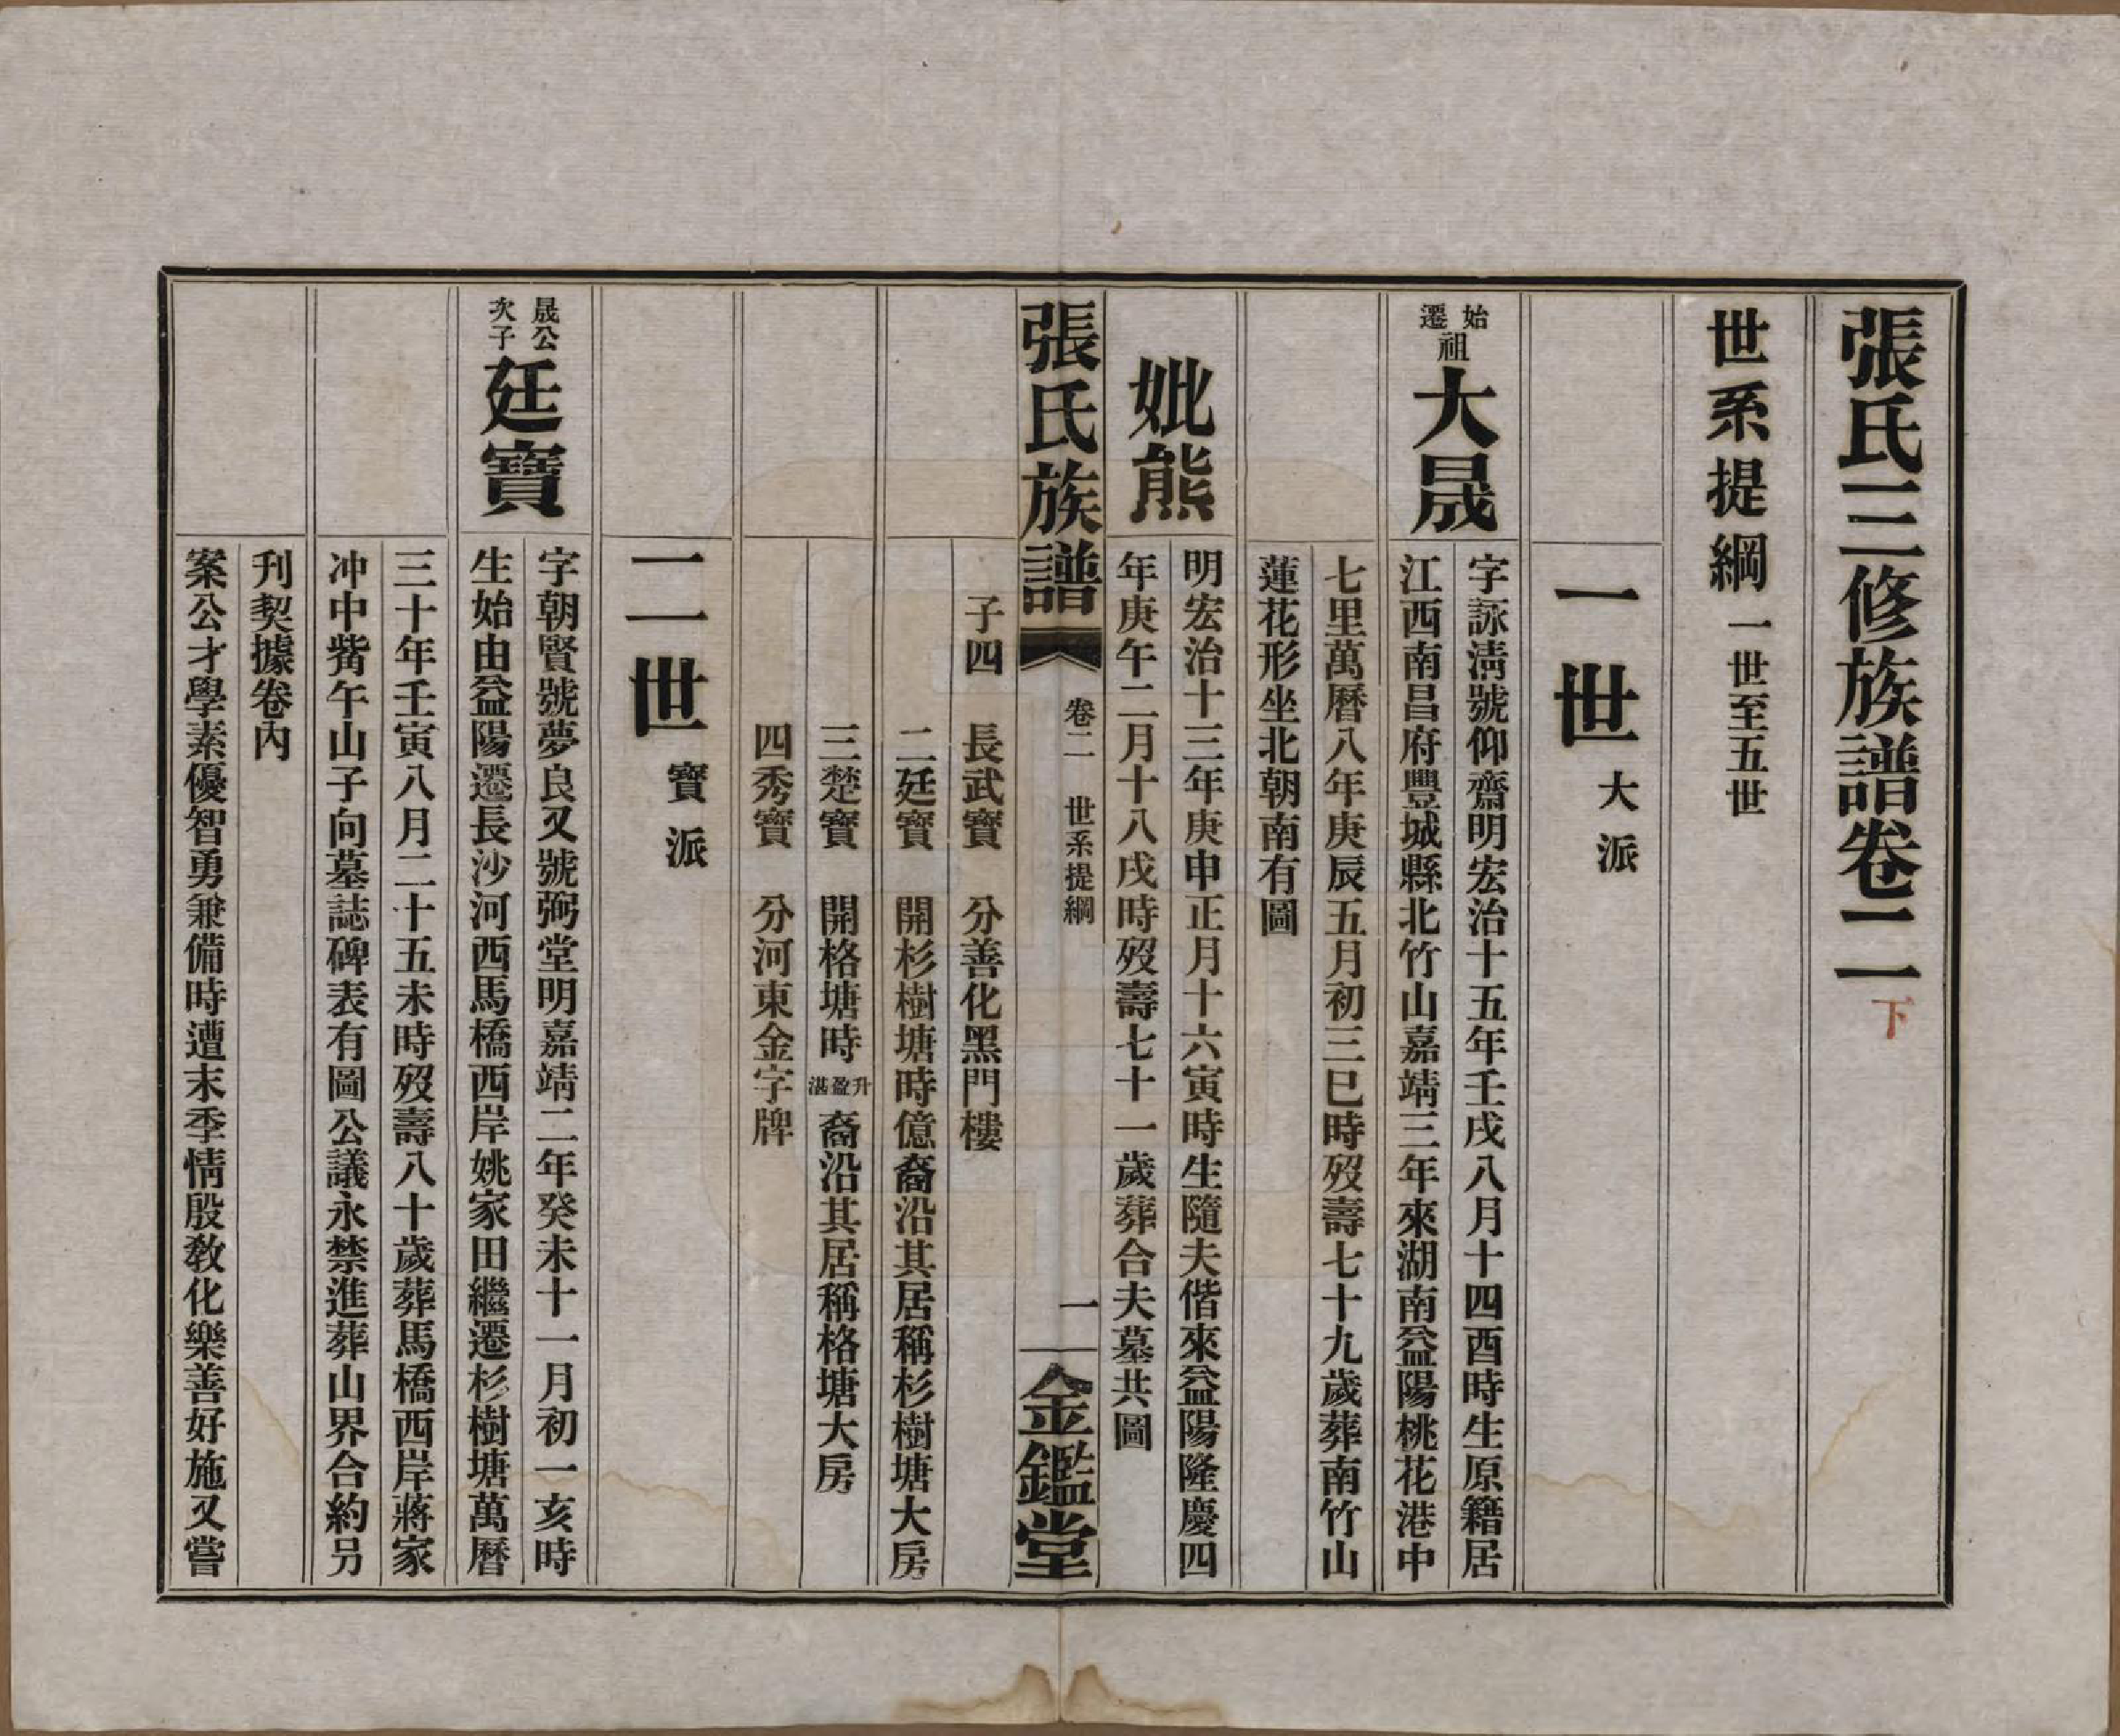 張氏三修族譜卷二 下
世系提綱 一世至五世
一世 大派
始遷祖 大晟
字詠清號仰齋明宏治十五年壬戌八月十四酉時生原籍居
江西南昌府豐城縣北竹山嘉靖三年來湖南益陽桃花港中
七里萬曆八年庚辰五月初三巳時歿壽七十九歲葬南竹山
蓮花形坐北朝南有圖
妣熊
明宏治十三年庚申正月十六寅時生隨夫偕來益陽隆慶四
年庚午二月十八戌時歿壽七十一歲葬合夫墓共圖
張氏族譜 卷二 世系提綱 一 金鑑堂
子四 長武寶 分善化黑門樓
二廷寶 開杉樹塘時億裔沿其居稱杉樹塘大房
三楚寶 開格塘時升盈湛裔沿其居稱格塘大房
四秀寶 分河東金字牌
二世 寶派
晟公次子 廷寶
字朝賢號夢良又號弼堂明嘉靖二年癸未十一月初一亥時
生始由益陽遷長沙河西馬橋西岸姚家田繼遷杉樹塘萬曆
三十年壬寅八月二十五未時歿壽八十歲葬馬橋西岸蔣家
冲中觜午山子向墓誌碑表有圖公議永禁進葬山界合約另
刊契據卷內
案公才學素優智勇兼備時遭末季情殷教化樂善好施又嘗